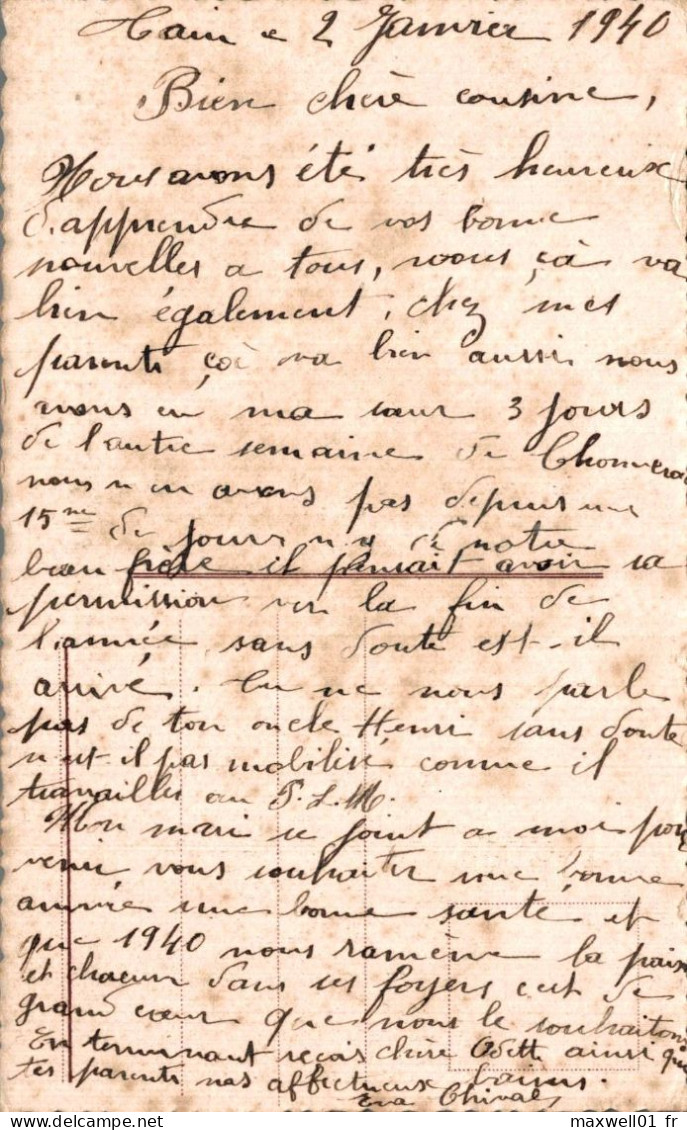 le 2 Janvier 1940
Bien chère cousine,
Nous avons été très heureux
d'apprendre de vos bonne
nouvelles a tous, nous ça va
bien également, chez mes
parents ça va bien aussi nous
avons eu ma sœur 3 jours
de l'autre semaine de Chomerac
nous n'en avons pas depuis une
15ne de jours n y de notre
beau frère il pensait avoir sa
permission ver la fin de
l'année sans doute est-il
arrivé. Tu ne nous parle
pas de ton oncle Henri sans doute
n'est-il pas mobilisé comme il
travailles au P.L.M.
Mon mari se joint a moi pour
venir vous souhaiter une bonne
année une bonne santé et
que 1940 nous ramène la paix
et chacun dans ses foyers c'est de
grand cœur que nous le souhaitons
En terminant reçois chère Odette ainsi que
tes parents nos affectueux baisers.
Eva
maxwell01 .fr